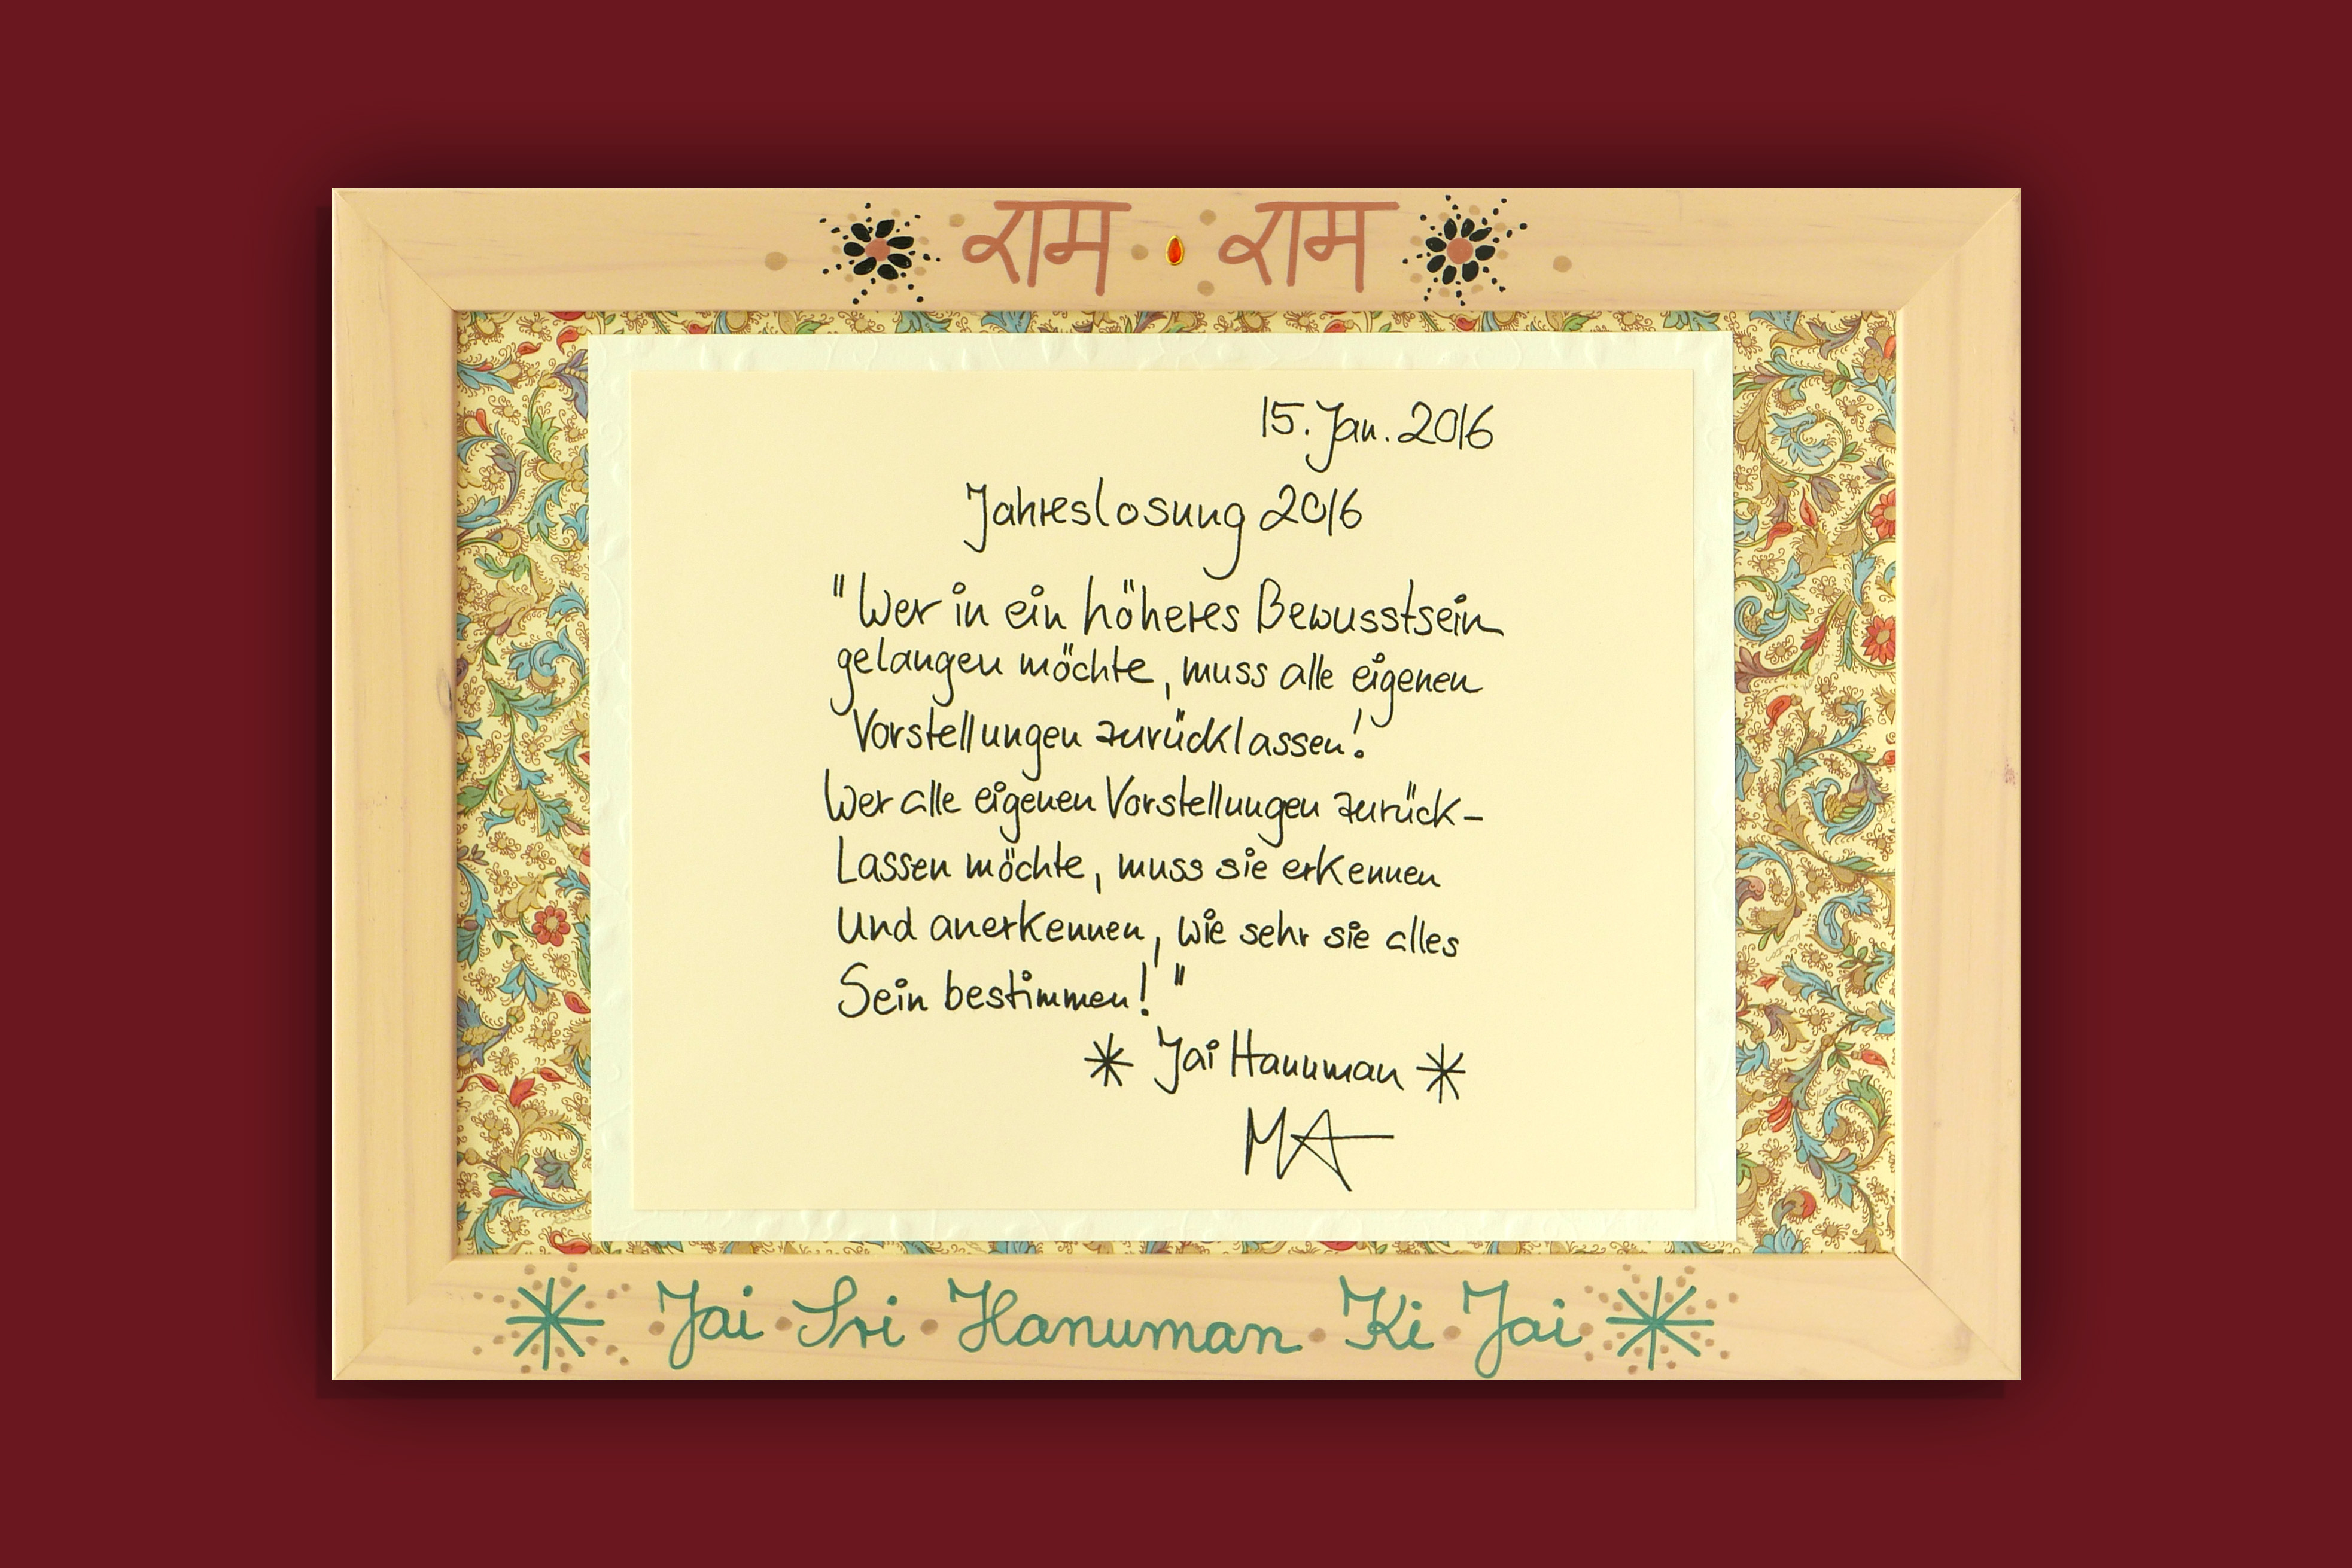 राम राम
15. Jan. 2016
Jahreslosung 2016
"Wer in ein höheres Bewusstsein
gelangen möchte, muss alle eigenen
Vorstellungen zurücklassen!
Wer alle eigenen Vorstellungen zurück-
Lassen möchte, muss sie erkennen
Und anerkennen, wie sehr sie alles
Sein bestimmen!"
* Jai Hanuman *
MA
Jai Sri Hanuman Ki Jai